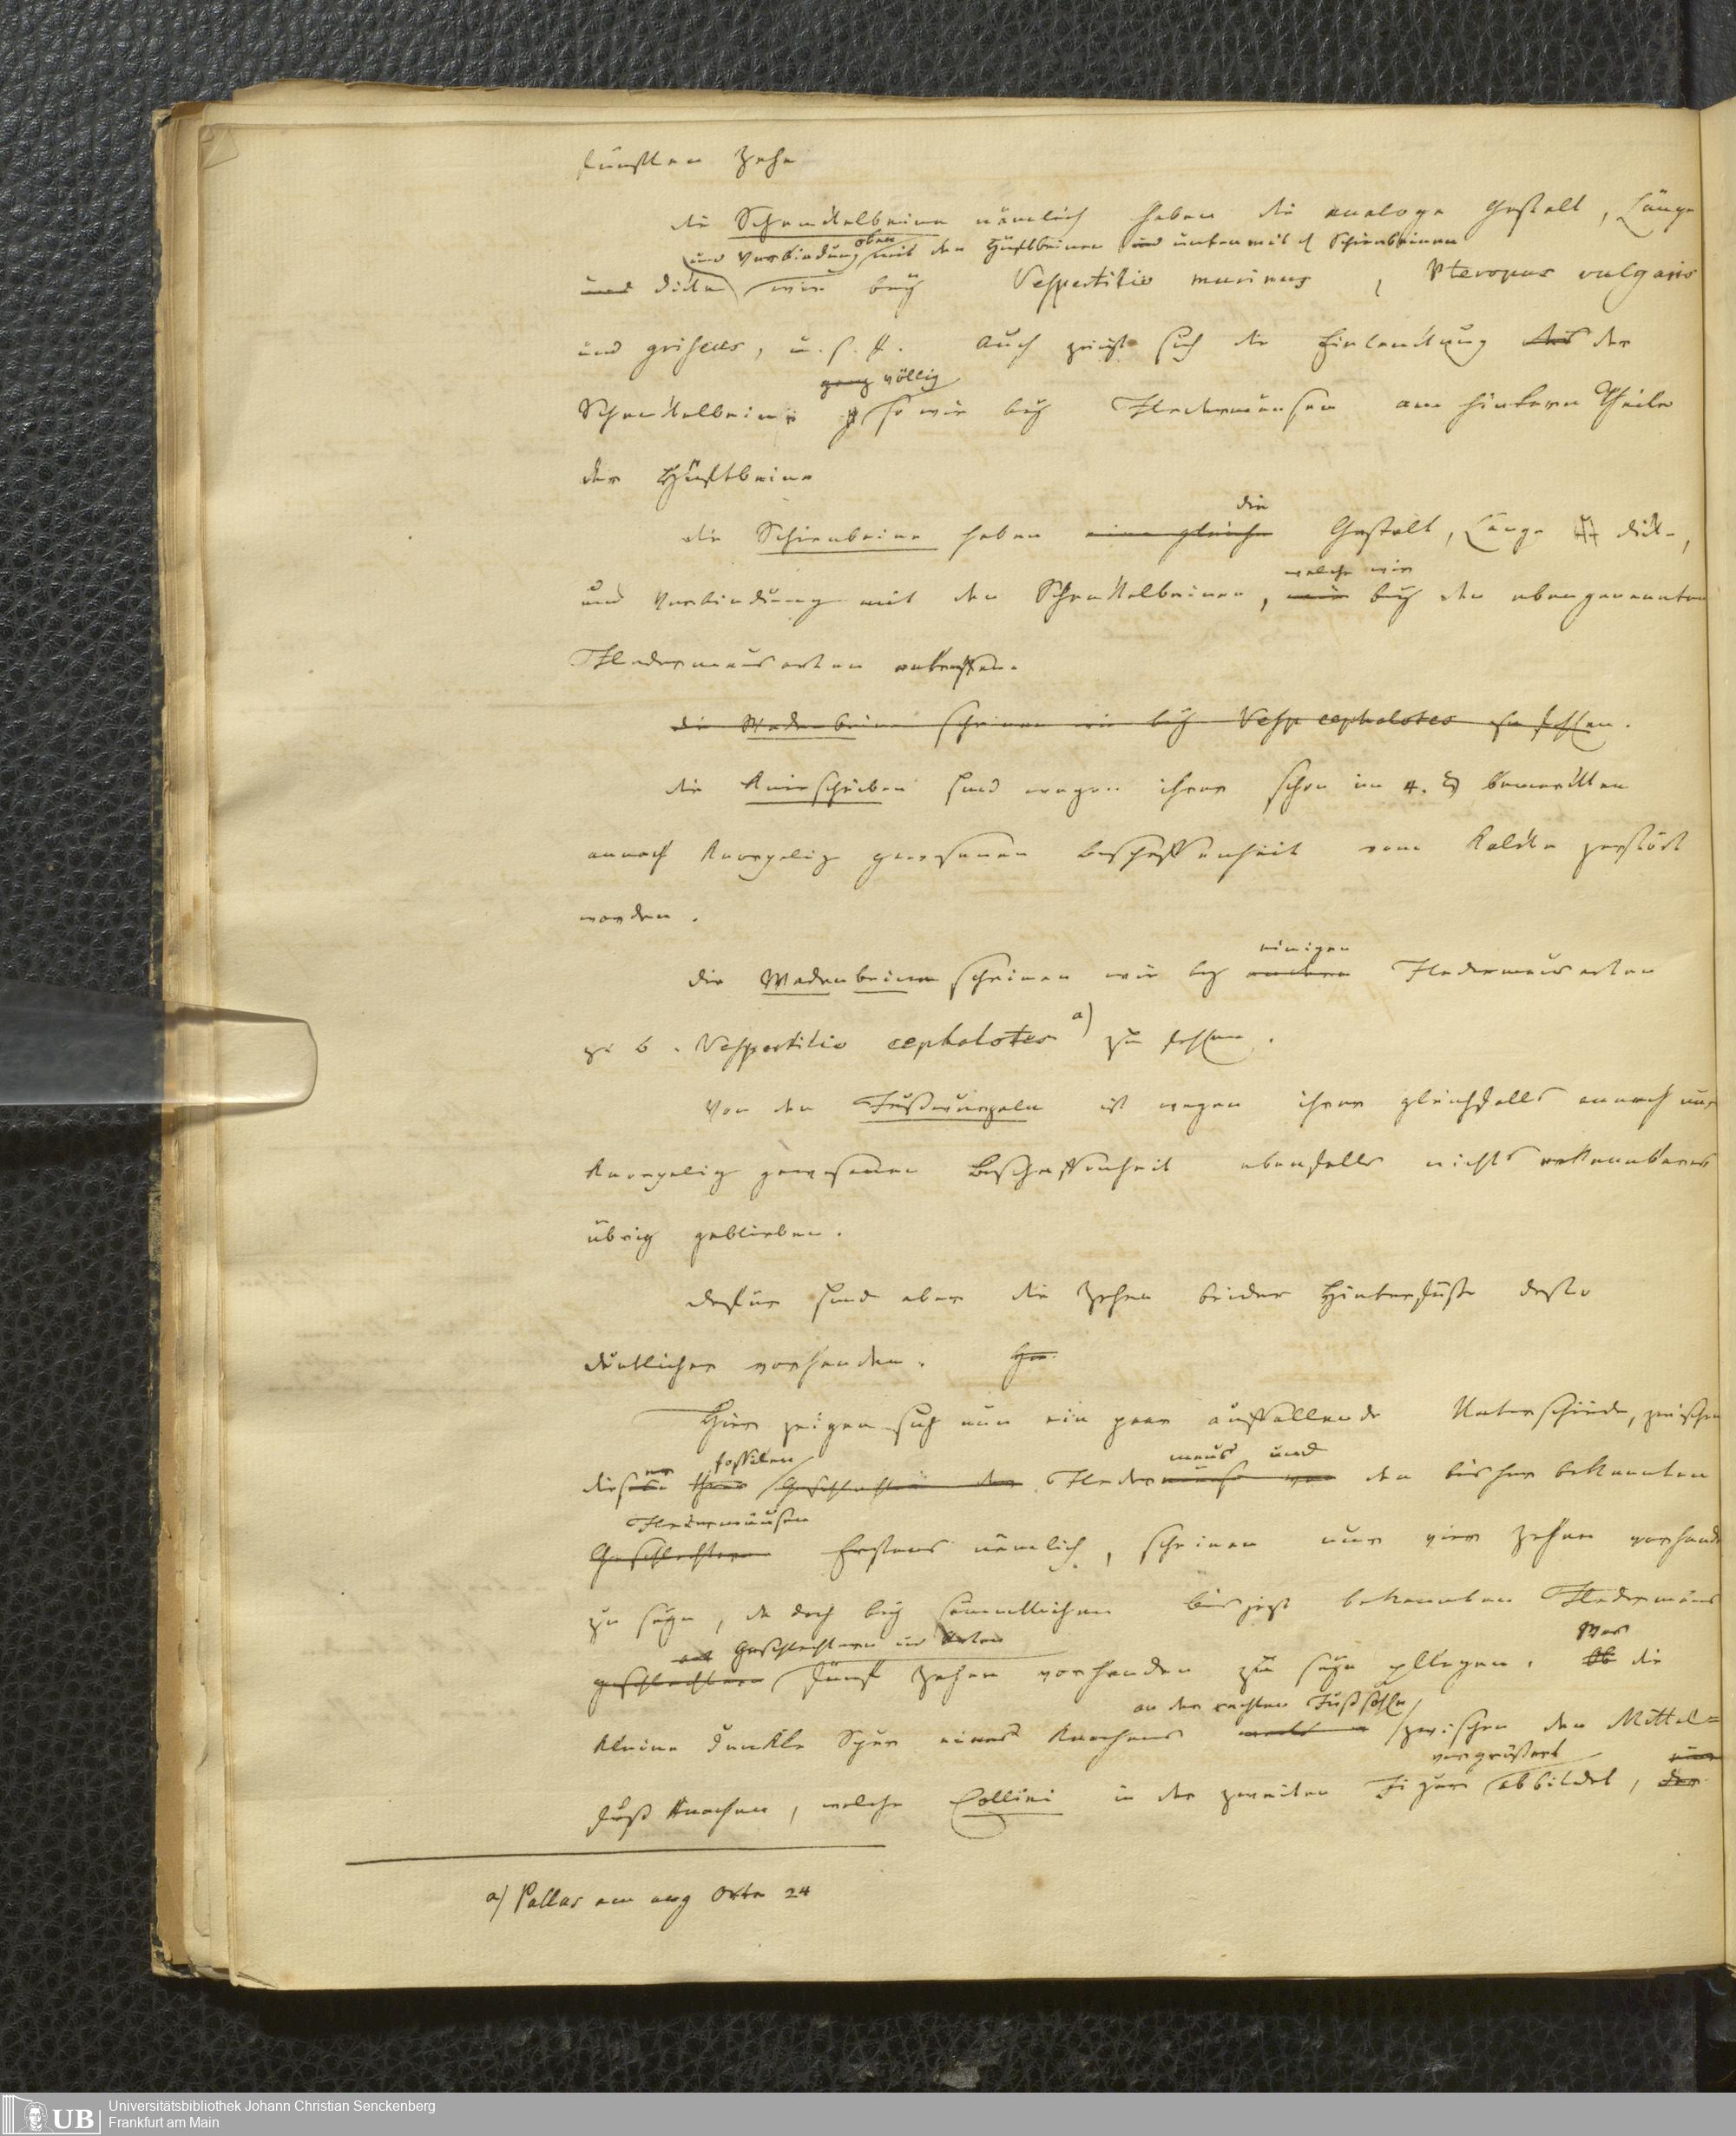 fünften Zehe
die Schenkelbeine nämlich haben die analoge Gestalt, Länge
und Verbindung oben mit den Hüftbeinen und unten mit d Schienbeinen
und Dicke wie bey Vespertitio murinus, Pteropus vulgaris
und griseus, u. s. f. Auch zeigt sich die Einlenkung des der
ganz völlig
Schenkelbeine so wie bey Fledermäusen am hintern Theile
der Hüftbeine
die
die Schienbeine haben eine gleiche Gestalt, Länge Dicke,
welche wir
und Verbindung mit den Schenkelbeinen, wie bey den obengenannten
Fledermausarten antreffen.
die Wadenbeine scheinen wie bey Vesp cephalotes zu fehlen.
die Kniescheiben sind wegen ihrer schon im 4. § bemerkten
annoch knorpelig gewesenen Beschaffenheit vom Kalke zerstört
worden.
einigen
die Wadenbeine scheinen wie bey andern Fledermausarten
z. b. Vespertitio cephalotes a) zu fehlen.
Von den Fußwurzeln ist wegen ihrer gleichfalls annoch nur
knorpelig gewesenen Beschaffenheit ebenfalls nichts erkennbares
übrig geblieben.
dafür sind aber die Zehen beider Hinterfüße desto
deutlicher vorhanden.
Hier zeigen sich nun ein paar auffallende Unterschiede, zwischen
er fossilen maus und
diese Geschlechter der Fledermäuse von den bisher bekannten
Fledermäusen
Geschlechtern Erstens nämlich, scheinen nur vier Zehen vorhanden
zu seyn, da doch bey sämmtlichen bis jezt bekannten Fledermaus
Geschlechtern und Arten Was
geschlechtern fünf Zehen vorhanden zu seyn pflegen. Ob die
an der rechten Fußsohle
kleine dunkle Spur eines Knochens zwischen den Mittel=
vergrößert
fuß Knochen, welche Collini in der zweiten Figur abbildet, der
a) Pallas am ang Orte 24
Universitätsbibliothek Johann Christian Senckenberg
Frankfurt am Main
UB